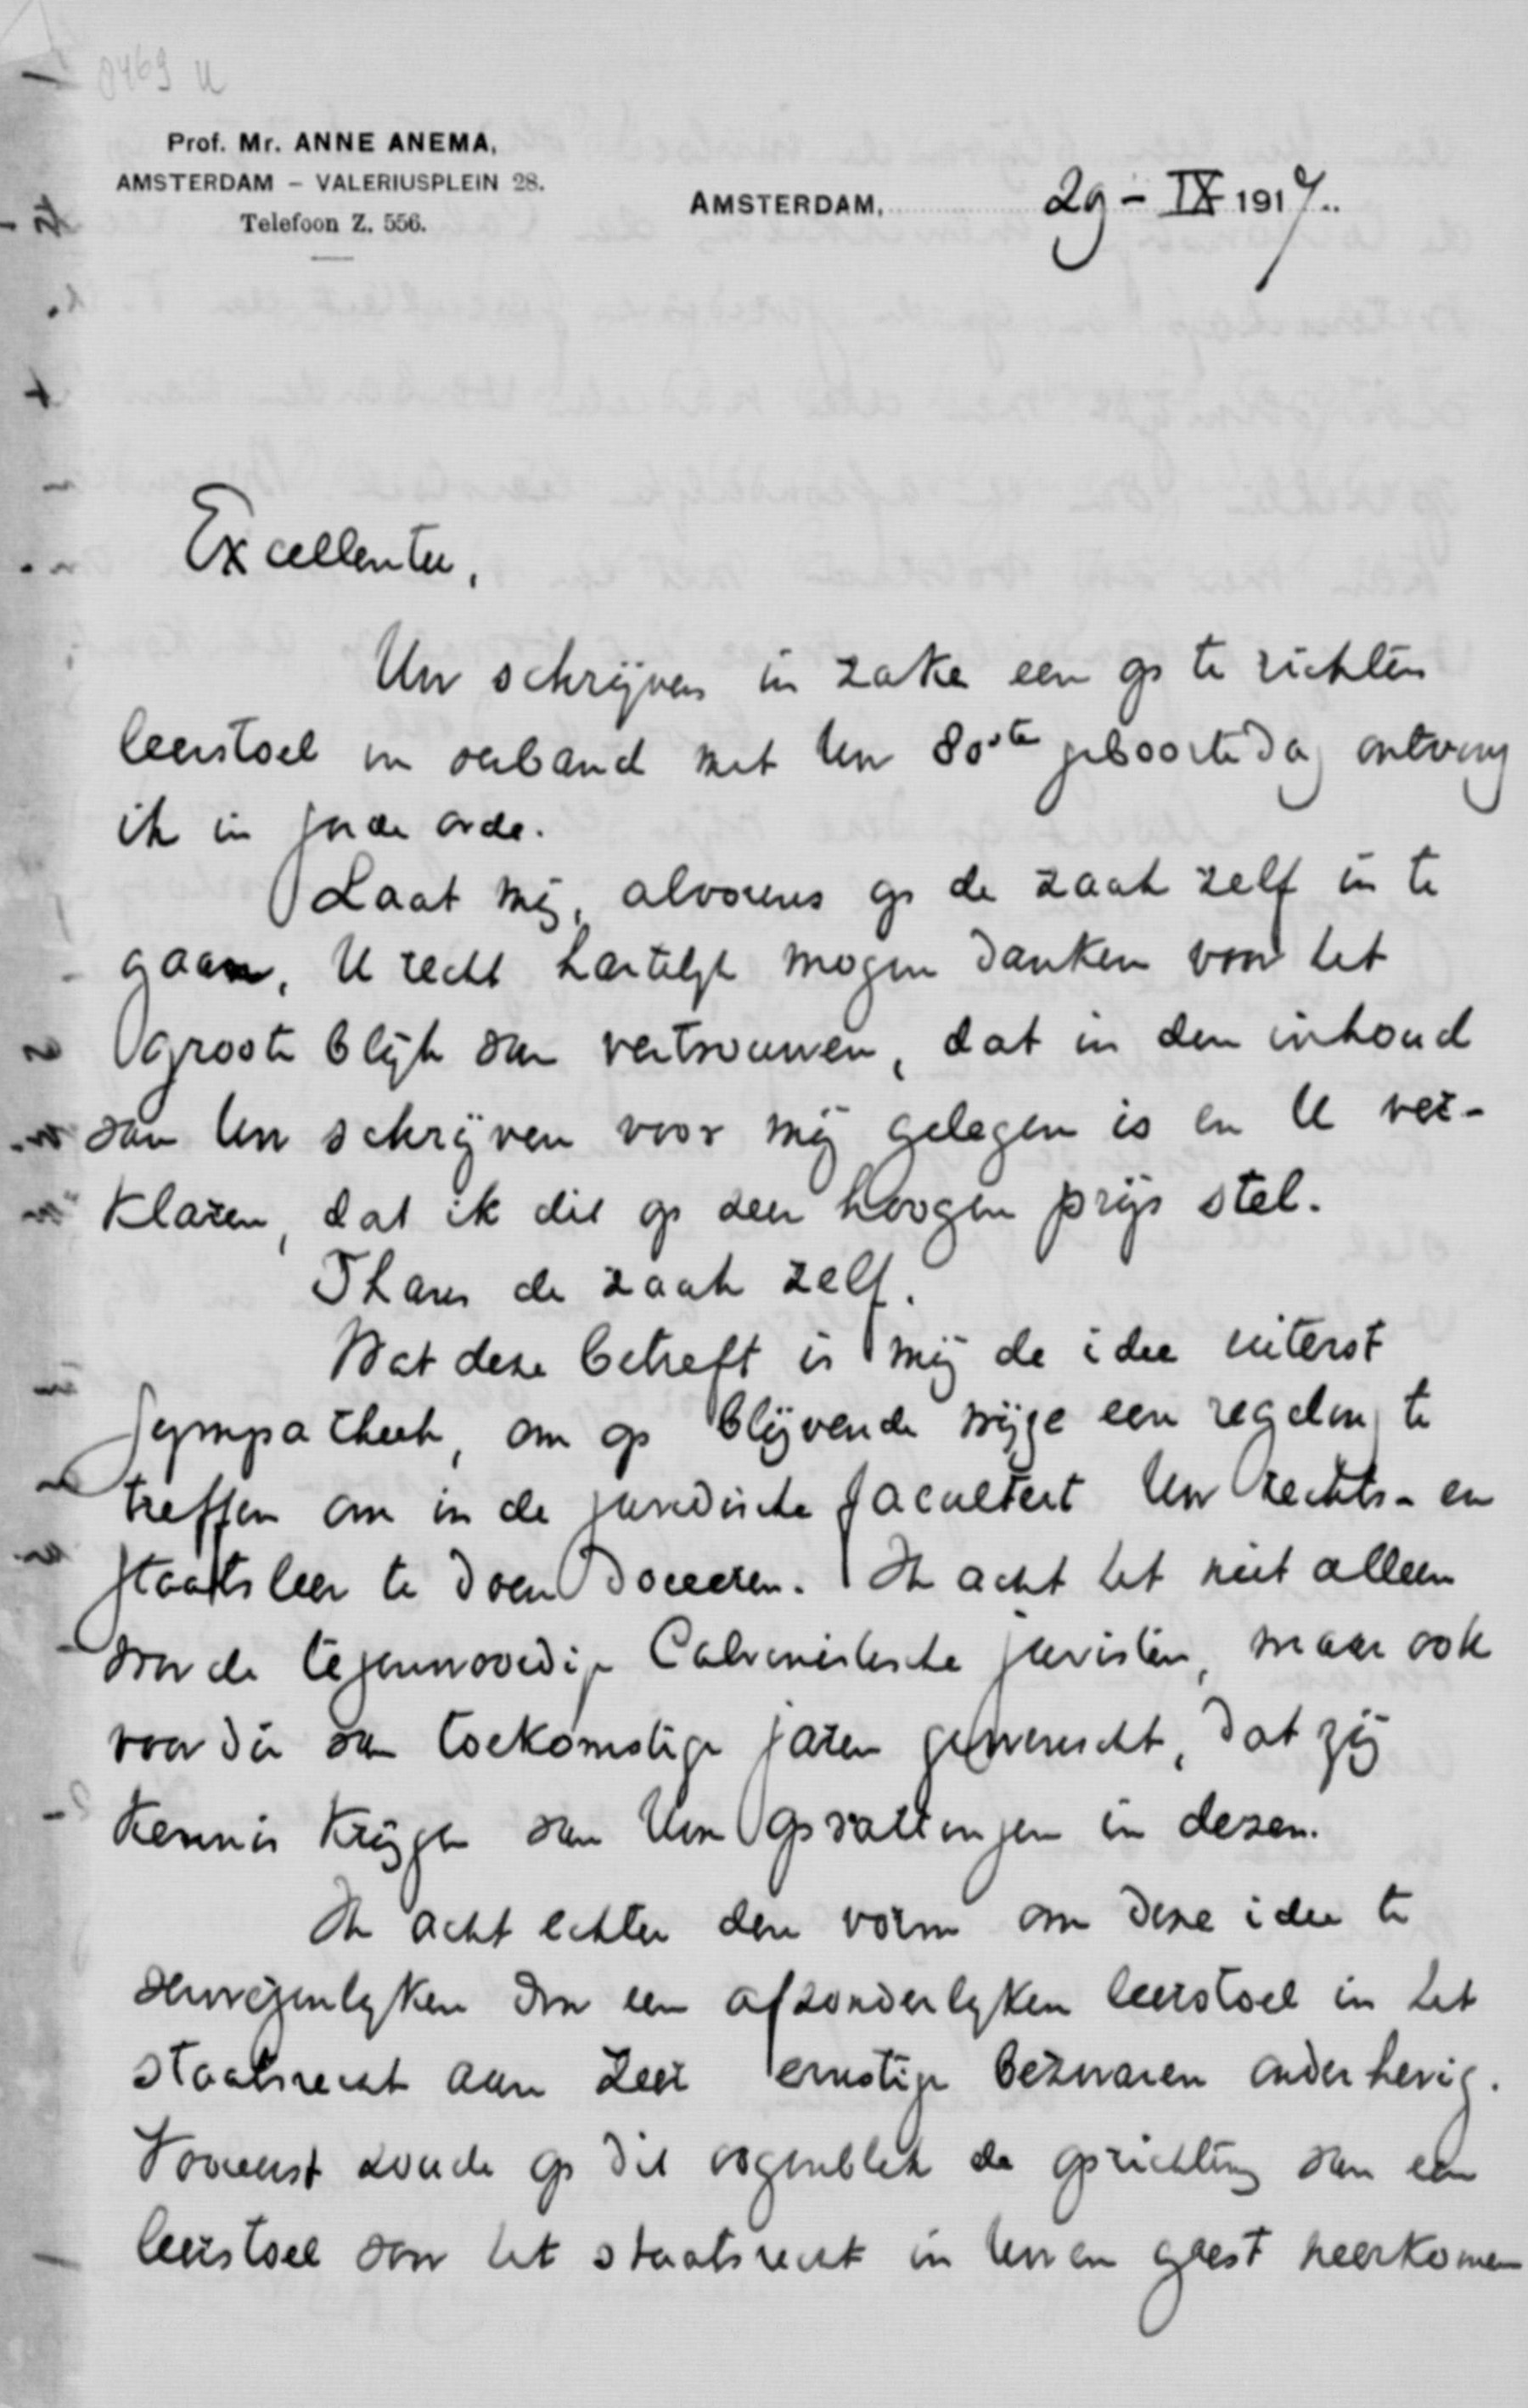 8469 U
Prof. Mr. ANNE ANEMA,
AMSTERDAM – VALERIUSPLEIN 28.
Telefoon Z. 556.
AMSTERDAM, 29 – IX 1917.
Excellentie,
Uw schrijven in zake een op te richten
leerstoel in verband met Uw 80ste geboortedag ontving
ik in goede orde.
Laat mij, alvorens op de zaak zelf in te
gaan, U recht hartelijk mogen danken voor het
groote blijk van vertrouwen, dat in den inhoud
van Uw schrijven voor mij gelegen is en U ver-
klaren, dat ik dit op zeer hoogen prijs stel.
Thans de zaak zelf.
Wat deze betreft is mij de idee uiterst
sympathiek, om op blijvende wijze een regeling te
treffen om in de juridische faculteit Uw rechts- en
staatsleer te doen doceeren. Ik acht het niet alleen
voor de tegenwoordige Calvinistische juristen, maar ook
voor die van toekomstige jaren gewenscht, dat zij
kennis krijgen van Uw opvattingen in dezen.
Ik acht echter den vorm om deze idee te
verwezenlyken door een afzonderlyken leerstoel in het
staatsrecht aan zeer ernstige bezwaren onderhevig.
Vooreerst zoude op dit oogenblik de oprichting van een
leerstoel voor het staatsrecht in Uwen geest neerkomen